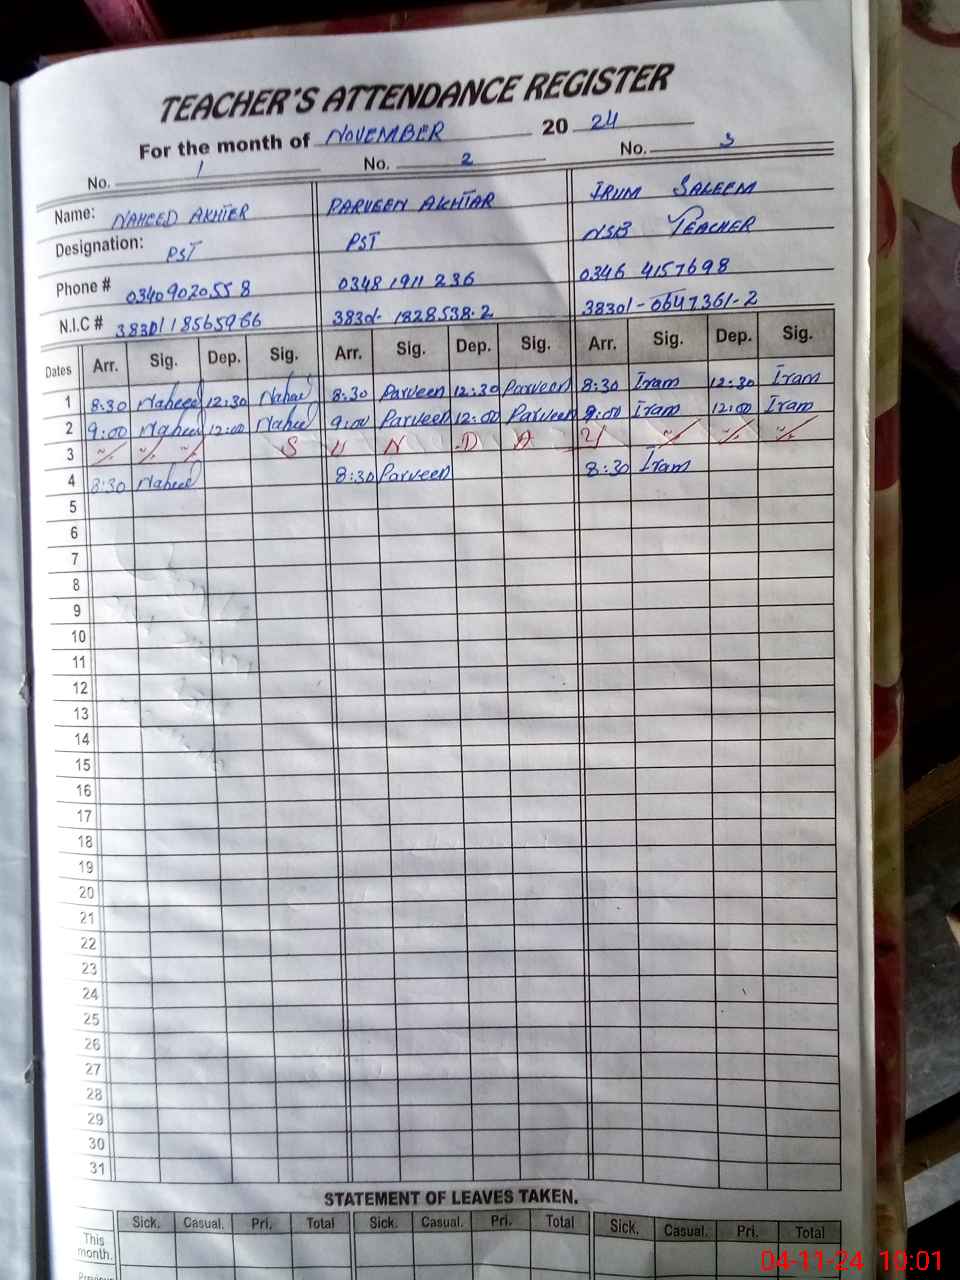 TEACHER'S ATTENDANCE REGISTER
For the month of NOVEMBER 20 24
No. 1 No. 2 No. 3
Name: NAHEED AKHTER PARVEEN AKHTAR IRUM SALEEM
Designation: PST PST NSB TEACHER
Phone # 03409020558 0348 1911 236 0346 4157698
N.I.C # 38301 18565966 38301- 1828538-2 38301-0647361-2
Dates Arr. Sig. Dep. Sig. Arr. Sig. Dep. Sig. Arr. Sig. Dep. Sig.
1 8:30 Naheed 12:30 Naheed 8:30 Parveen 12:30 Parveen 8:30 Iram 12:30 Iram
2 9:00 Naheed 12:00 Naheed 9:00 Parveen 12:00 Parveen 9:00 Iram 12:00 Iram
3 S U N D A Y
4 8:30 Naheed 8:30 Parveen 8:30 Iram
5
6
7
8
9
10
11
12
13
14
15
16
17
18
19
20
21
22
23
24
25
26
27
28
29
30
31
STATEMENT OF LEAVES TAKEN.
Sick. Casual. Pri. Total Sick. Casual. Pri. Total Sick. Casual. Pri. Total
This month.
04-11-24 10:01